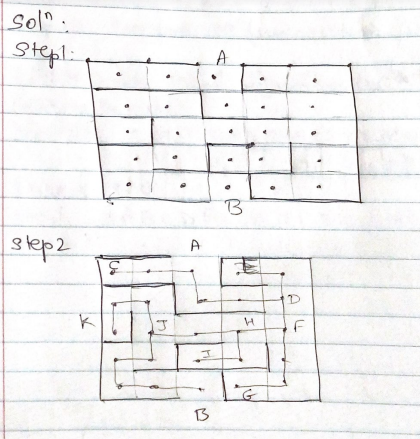 Solⁿ:
Step1:
A
B
Step2
A
C
E
D
K
J
H
F
I
G
B